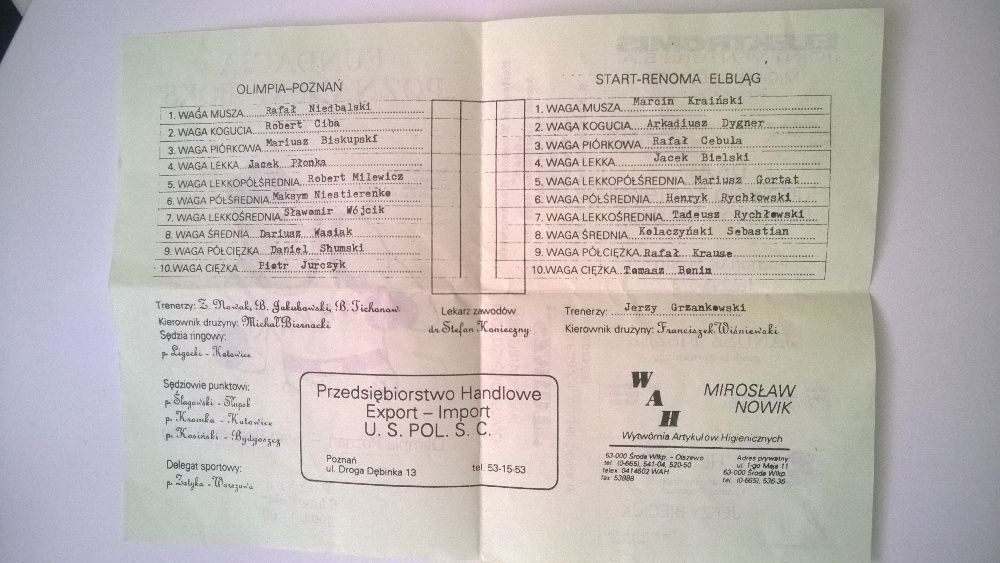 OLIMPIA–POZNAŃ
1. WAGA MUSZA Rafał Niedbalski
2. WAGA KOGUCIA Robert Ciba
3. WAGA PIÓRKOWA Mariusz Biskupski
4. WAGA LEKKA Jacek Płonka
5. WAGA LEKKOPÓŁŚREDNIA Robert Milewicz
6. WAGA PÓŁŚREDNIA Maksym Niestierenko
7. WAGA LEKKOŚREDNIA Sławomir Wójcik
8. WAGA ŚREDNIA Dariusz Wasiak
9. WAGA PÓŁCIĘŻKA Daniel Shumski
10. WAGA CIĘŻKA Piotr Jurczyk
START-RENOMA ELBLĄG
1. WAGA MUSZA Marcin Kraiński
2. WAGA KOGUCIA Arkadiusz Dygner
3. WAGA PIÓRKOWA Rafał Cebula
4. WAGA LEKKA Jacek Bielski
5. WAGA LEKKOPÓŁŚREDNIA Mariusz Gortat
6. WAGA PÓŁŚREDNIA Henryk Rychłowski
7. WAGA LEKKOŚREDNIA Tadeusz Rychłowski
8. WAGA ŚREDNIA Kołaczyński Sebastian
9. WAGA PÓŁCIĘŻKA Rafał Krause
10. WAGA CIĘŻKA Tomasz Benin
Trenerzy: Z. Nowak, B. Jakubowski, B. Tichanow
Kierownik drużyny: Michał Biernacki
Sędzia ringowy:
p. Ligocki - Katowice
Sędziowie punktowi:
p. Ślagowski - Słupsk
p. Kromka - Katowice
p. Kosiński - Bydgoszcz
Delegat sportowy:
p. Zatyka - Warszawa
Lekarz zawodów
dr. Stefan Konieczny
Trenerzy: Jerzy Grzankowski
Kierownik drużyny: Franciszek Wiśniewski
Przedsiębiorstwo Handlowe
Export – Import
U. S. POL. S. C.
Poznań
ul. Droga Dębinka 13 tel. 53-15-53
WAH
MIROSŁAW
NOWIK
Wytwórnia Artykułów Higienicznych
63-000 Środa Wlkp. – Olszewo
tel. (0-665), 541-04, 520-50
telex 0414602 WAH
fax 53888
Adres prywatny
ul. 1-go Maja 11
63-000 Środa Wlkp.
tel. (0-665), 536-36